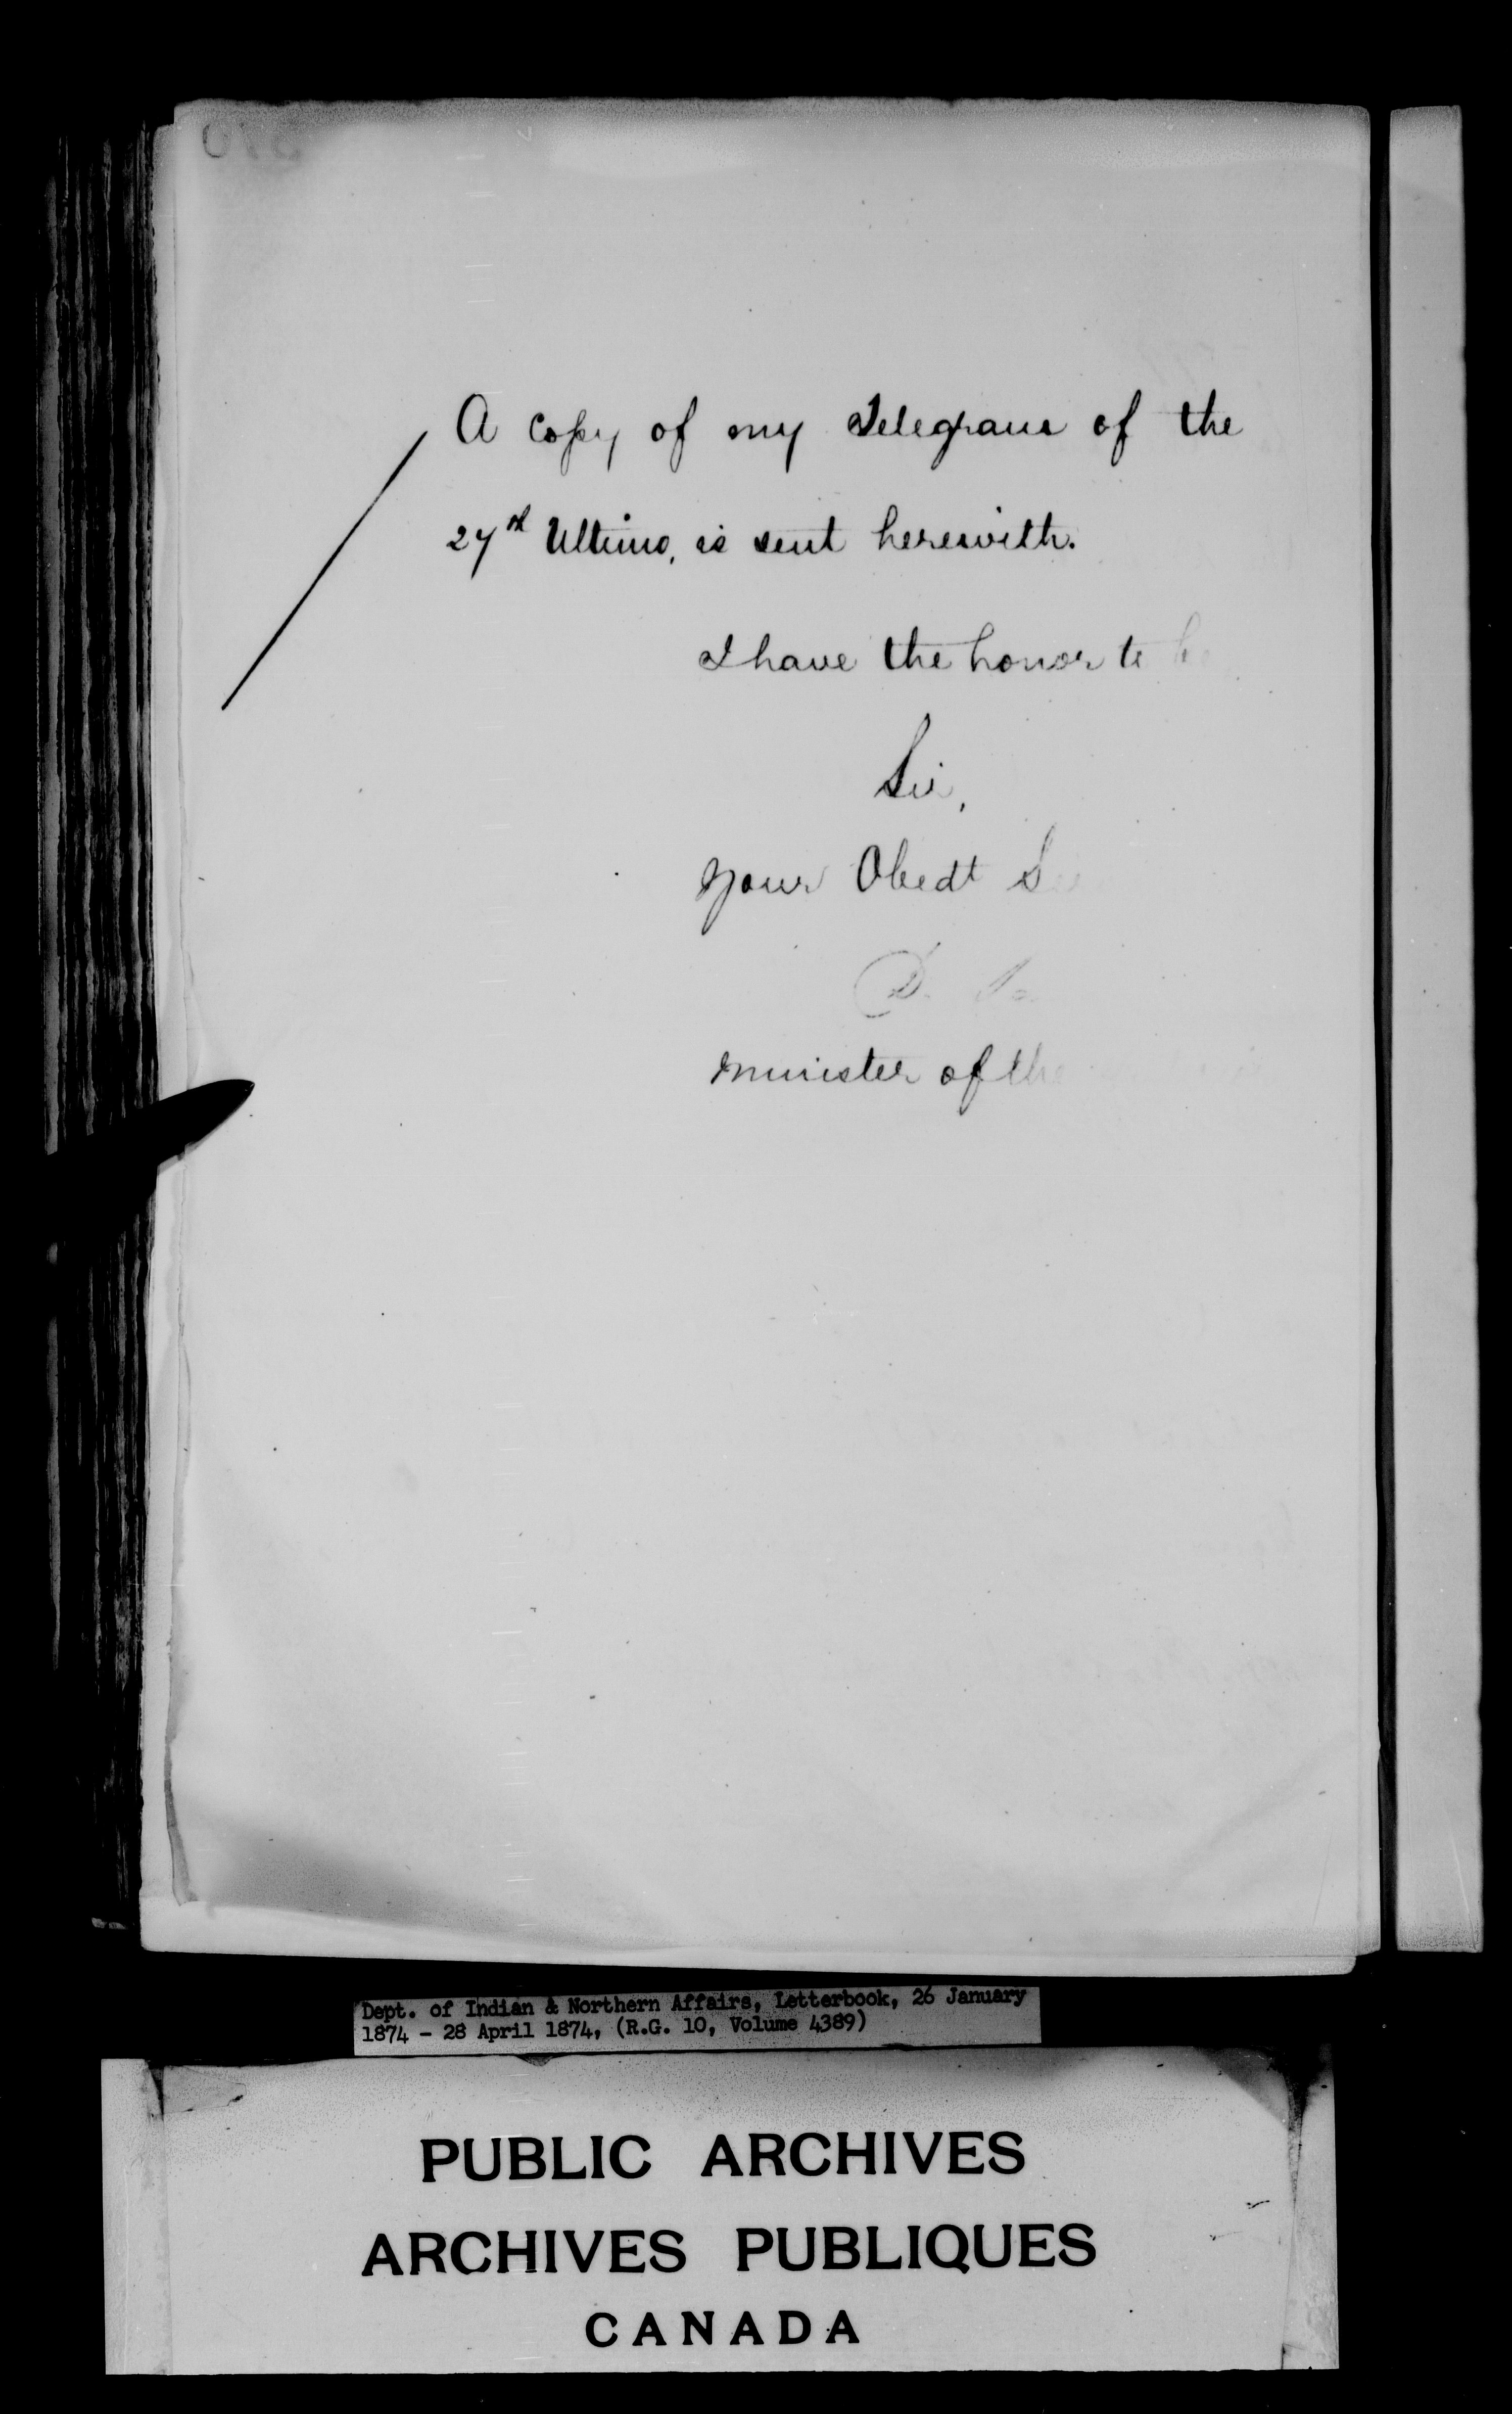 A copy of my Telegram of the
27th Ultimo, is sent herewith.
I have the honor to be
Sir,
Your Obedt
D.
Minister of the
Dept. of Indian & Northern Affairs, Letterbook, 26 January
1874 - 28 April 1874, (R.G. 10, Volume 4389)
PUBLIC ARCHIVES
ARCHIVES PUBLIQUES
CANADA